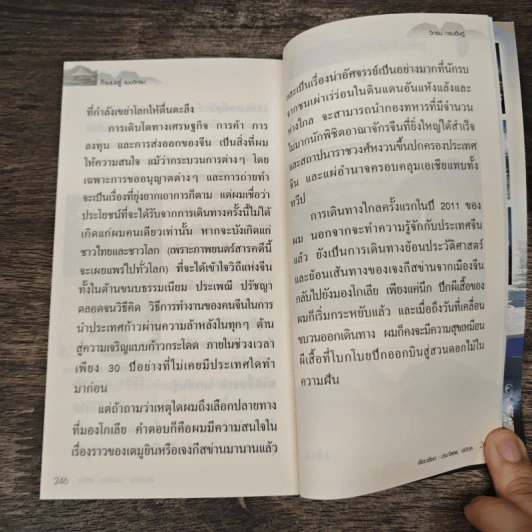 กินและอยู่ แบบวิกรม
ที่กำลังเขย่าโลกให้ตื่นตะลึง
การเติบโตทางเศรษฐกิจ การค้า การ
ลงทุน และการส่งออกของจีน เป็นสิ่งที่ผม
ให้ความสนใจ แม้ว่ากระบวนการต่างๆ โดย
เฉพาะการขออนุญาตต่างๆ และการถ่ายทำ
จะเป็นเรื่องที่ยุ่งยากเอาการก็ตาม แต่ผมเชื่อว่า
ประโยชน์ที่จะได้รับจากการเดินทางครั้งนี้ไม่ได้
เกิดแก่ผมคนเดียวเท่านั้น หากจะบังเกิดแก่
ชาวไทยและชาวโลก (เพราะภาพยนตร์สารคดีนี้
จะเผยแพร่ไปทั่วโลก) ที่จะได้เข้าใจวิถีแห่งจีน
ทั้งในด้านขนบธรรมเนียม ประเพณี ปรัชญา
ตลอดจนวิธีคิด วิธีการทำงานของคนจีนในการ
นำประเทศก้าวผ่านความล้าหลังในทุกๆ ด้าน
สู่ความเจริญแบบก้าวกระโดด ภายในช่วงเวลา
เพียง 30 ปีอย่างที่ไม่เคยมีประเทศใดทำ
มาก่อน
แต่ถ้าถามว่าเหตุใดผมถึงเลือกปลายทาง
ที่มองโกเลีย คำตอบก็คือผมมีความสนใจใน
เรื่องราวของเตมูยินหรือเจงกีสข่านมานานแล้ว
246
วิกรม กรมดิษฐ์
และเป็นเรื่องน่าอัศจรรย์เป็นอย่างมากที่นักรบ
จากชนเผ่าเร่ร่อนในดินแดนอันแห้งแล้งและ
ห่างไกล จะสามารถนำกองทหารที่มีจำนวน
ไม่มากนักพิชิตอาณาจักรจีนที่ยิ่งใหญ่ได้สำเร็จ
และสถาปนาราชวงศ์หงวนขึ้นปกครองประเทศ
จีน และแผ่อำนาจครอบคลุมเอเชียแทบทั้ง
ทวีป
การเดินทางไกลครั้งแรกในปี 2011 ของ
ผม นอกจากจะทำความรู้จักกับประเทศจีน
แล้ว ยังเป็นการเดินทางย้อนประวัติศาสตร์
และย้อนเส้นทางของเจงกีสข่านจากเมืองจีน
กลับไปยังมองโกเลีย เพียงแค่นึก ปีกผีเสื้อของ
ผมก็เริ่มกระหยับแล้ว และเมื่อถึงวันที่เคลื่อน
ขบวนออกเดินทาง ผมก็คงจะมีความสุขเหมือน
ผีเสื้อที่โบกโบยปีกออกบินสู่สวนดอกไม้ใน
ความฝัน
เขียนเรียง : ประภัสสร เสวิกุล